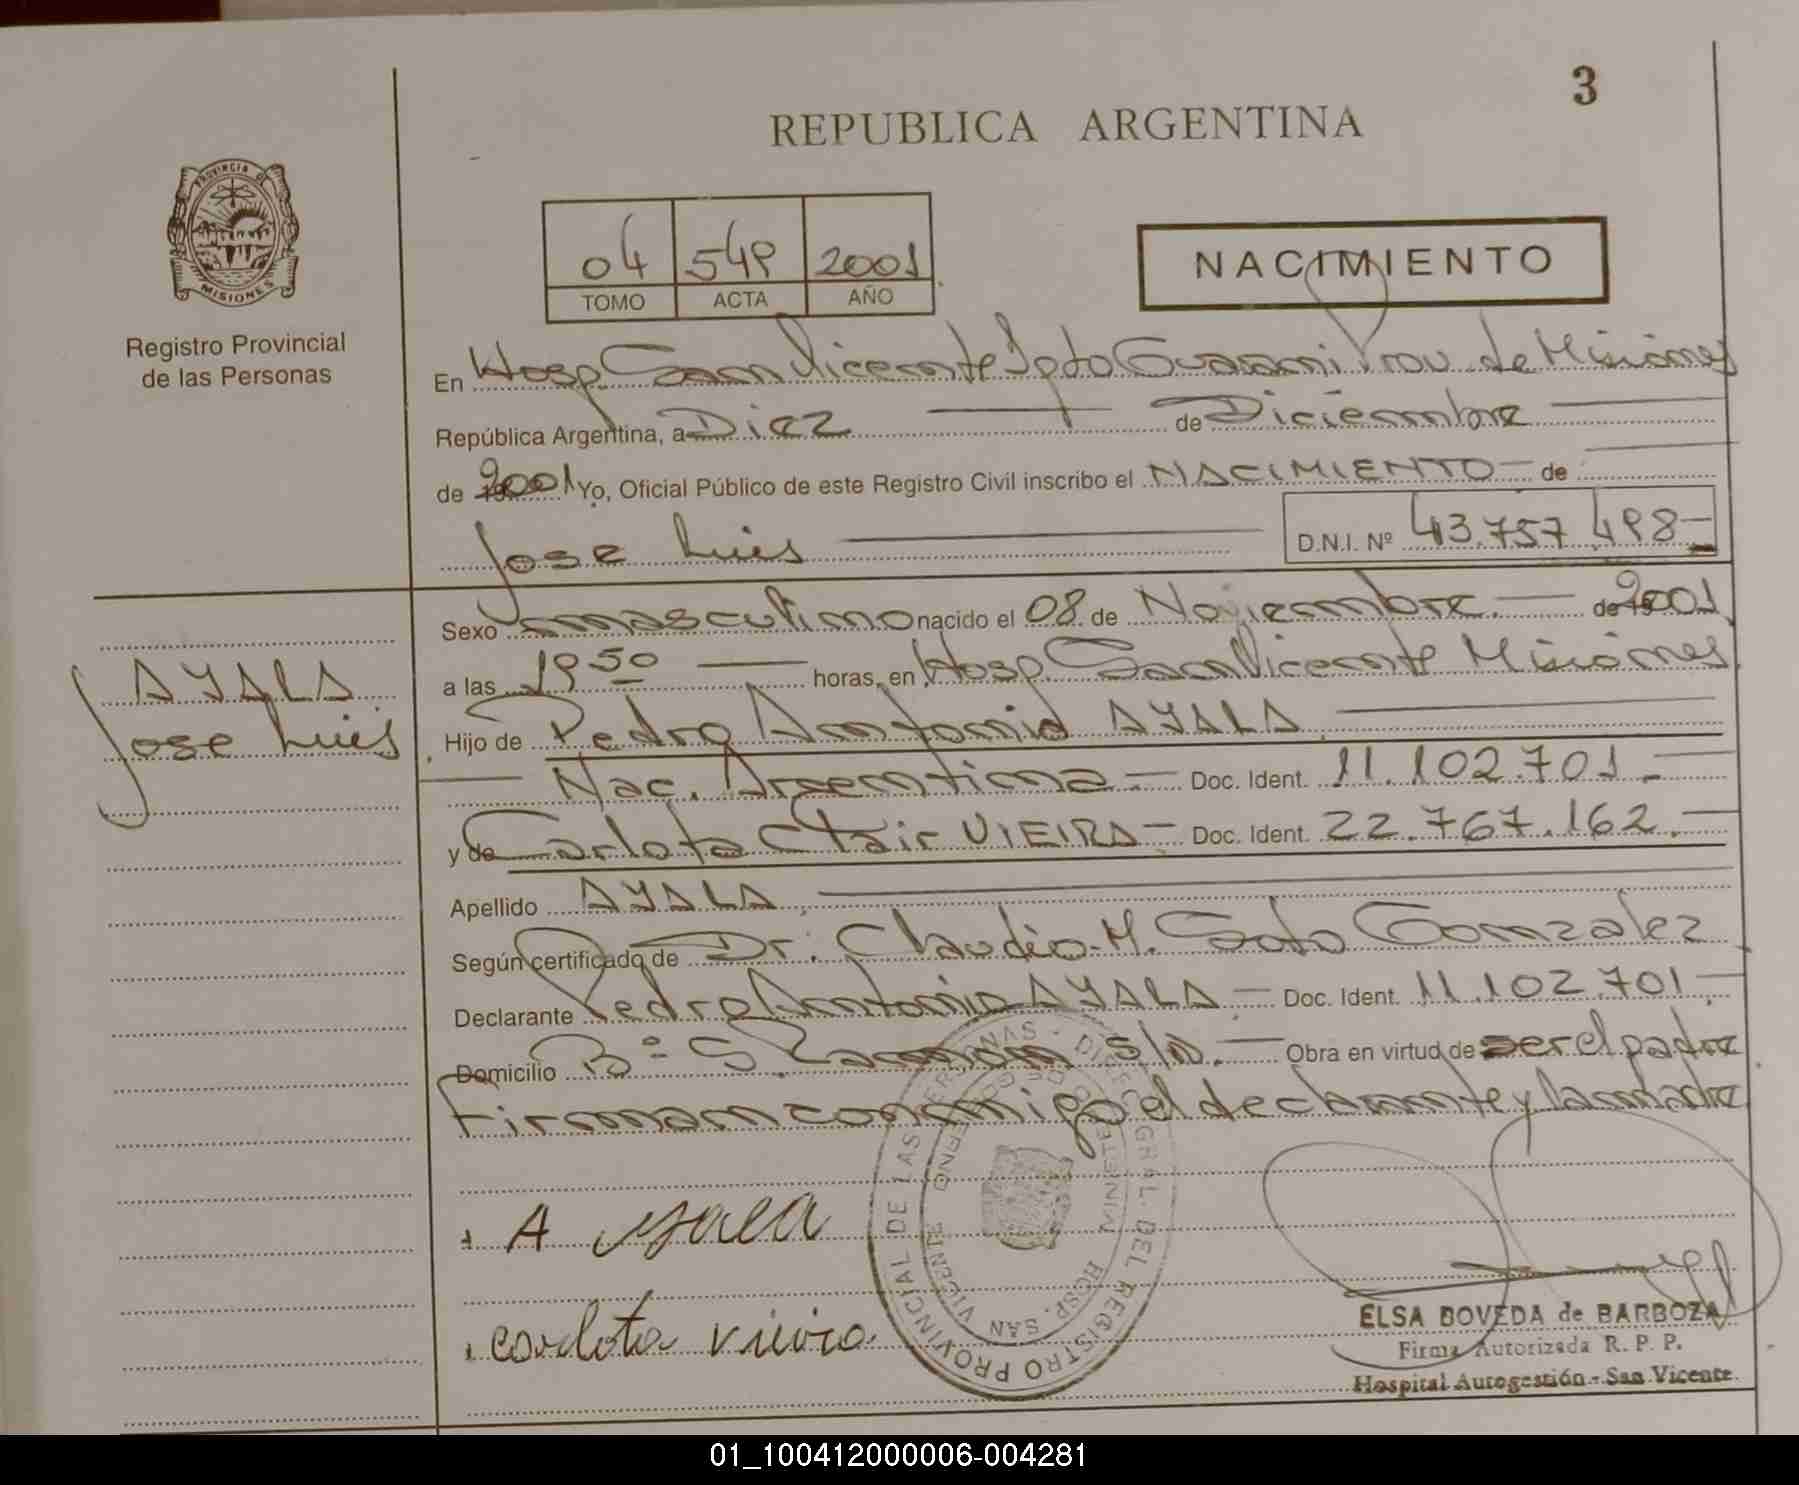 3
REPUBLICA ARGENTINA
PROVINCIA DE
MISIONES
Registro Provincial
de las Personas
04 549 2001
TOMO ACTA AÑO
NACIMIENTO
En Hosp San Vicente Dpto Guarani Prov. de Misiones
República Argentina, a Diez de Diciembre
de 2001 Yo, Oficial Público de este Registro Civil inscribo el NACIMIENTO de
Jose Luis D.N.I. Nº 43.757.498
Sexo masculino nacido el 08 de Noviembre. de 2001
a las 19 50 horas, en Hosp San Vicente Misiones
AYALA
Jose Luis
Hijo de Pedro Antonio AYALA
Nac. Argentina Doc. Ident. 11.102.701.
y de Carlota Clair VIEIRA Doc. Ident. 22.767.162.
Apellido AYALA
Según certificado de Dr. Claudio M. Soto Gonzalez
Declarante Pedro Antonio AYALA Doc. Ident. 11.102.701
Domicilio Bº S. Ramon S/N. Obra en virtud de ser el padre
Firman conmigo el declarante y la madre
A yala
carlota vieira
REGISTRO PROVINCIAL DE LAS PERSONAS - DIREC. GRAL. DEL
HOSP. SAN VICENTE
ELSA BOVEDA de BARBOZA
Firma Autorizada R. P. P.
Hospital Autogestión - San Vicente
01_100412000006-004281